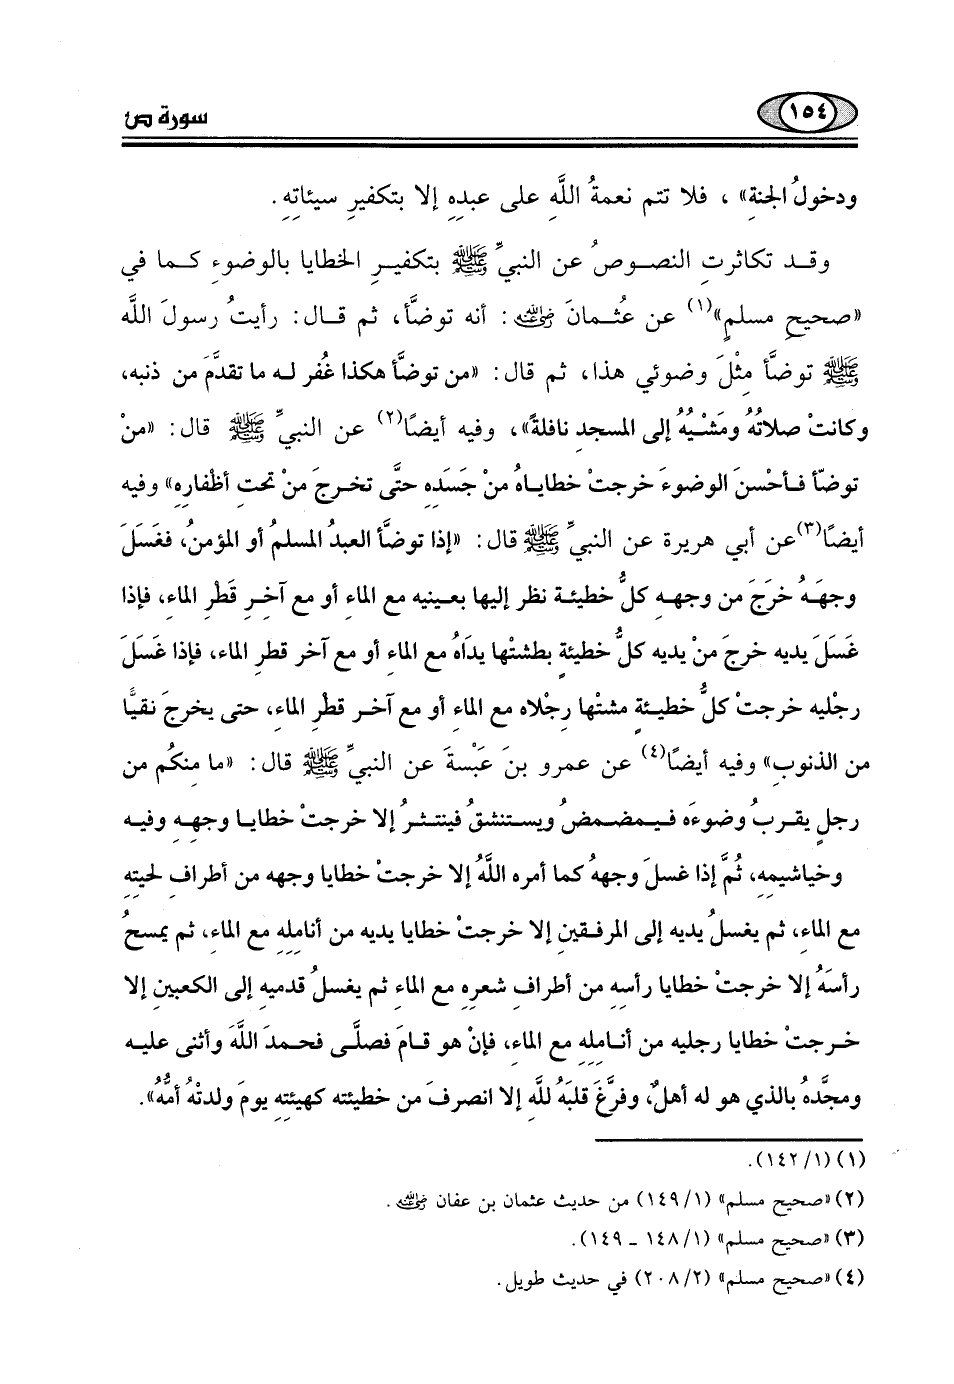 ١٥٤
سورة ص
ودخولُ الجنةِ» ، فلا تتم نعمةُ اللَّهِ على عبدِهِ إلا بتكفيرِ سيئاتِهِ .
وقـد تكاثرتِ النصـوصُ عن النبيِّ ﷺ بتكفيـرِ الخطايا بالوضوءِ كـما في
«صحيحِ مسلمٍ»(١) عن عُثـمانَ رضي الله عنه : أنه توضَّأ، ثم قـال: رأيتُ رسولَ اللَّه
ﷺ توضَّأ مِثْلَ وضوئي هذا، ثم قال: «من توضَّأ هكذا غُفر لـه ما تقدَّمَ من ذنبه،
وكانتْ صلاتُهُ ومَشْيُهُ إلى المسجدِ نافلةً»، وفيه أيضًا(٢) عن النبيِّ ﷺ قال: «منْ
توضّأ فـأحْسنَ الوضوءَ خرجتْ خطايـاهُ منْ جَسَدِه حتَّى تخـرجَ منْ تحتِ أظْفارِهِ» وفيه
أيضًا(٣)عن أبي هريرة عن النبيِّ ﷺ قال: «إذا توضَّأ العبدُ المسلمُ أو المؤمنُ، فغَسَلَ
وجهَـهُ خرَجَ من وجهـهِ كلُّ خطيئـة نظر إليها بعـينيه مع الماءِ أو مع آخـرِ قَطْرِ الماءِ، فإذا
غَسَلَ يديه خرجَ منْ يديه كلُّ خطيئةٍ بطشتْها يدَاهُ مع الماءِ أو مع آخر قطرِ الماءِ، فإذا غَسَلَ
رجْليه خرجتْ كلُّ خطيـئةٍ مشتْها رجْلاه مع الماءِ أو مع آخـر قطْرِ الماءِ، حتى يخرجَ نقيًّا
من الذنوبِ» وفيه أيضًا(٤) عن عمرو بنَ عَبْسةَ عن النبيِّ ﷺ قال: «ما منكُم من
رجلٍ يقـربُ وضوءَه فيـمضـمضُ ويسـتنشقُ فينتـثرُ إلا خرجتْ خطايـا وجهـهِ وفيـه
وخياشيمِهِ، ثُمَّ إذا غسلَ وجههُ كما أمره اللَّهُ إلا خرجتْ خطايا وجهه من أطرافِ لحيتِهِ
مع الماءِ، ثم يغسلُ يديه إلى المرفـقين إلا خرجتْ خطايا يديه من أناملِهِ مع الماءِ، ثم يمسحُ
رأسَهُ إلا خرجتْ خطايا رأسِهِ من أطرافِ شعرِهِ مع الماءِ ثم يغسلُ قدميهِ إلى الكعبينِ إلا
خـرجتْ خطايا رجليه من أنـامله مع الماءِ، فإنْ هو قـامَ فصلَّـى فحـمدَ اللَّهَ وأثنى عليـه
ومجَّدهُ بالذي هو له أهلٌ، وفرَّغَ قلبَهُ للَّهِ إلا انصرفَ من خطيئته كهيئتِهِ يومَ ولدتْهُ أمُّهُ».
(١) (١٤٢/١).
(٢) «صحيح مسلم» (١٤٩/١) من حديث عثمان بن عفان رضي الله عنه .
(٣) «صحيح مسلم» (١٤٨/١ ـ ١٤٩).
(٤) «صحيح مسلم» (٢٠٨/٢) في حديث طويل.